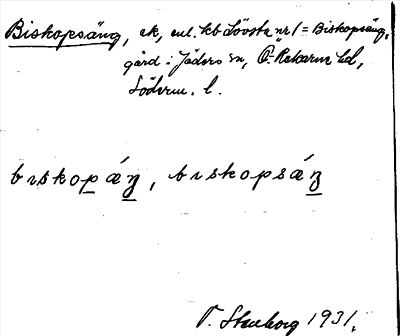 Biskopsäng, ek, enl. kb Lövsta nr 1 = Biskopsäng,
gård i Jäders sn, Ö. Rekarne hd,
Söderm. l.
bɩskopáŋ, bɩskopsáŋ
T. Stenborg 1931.